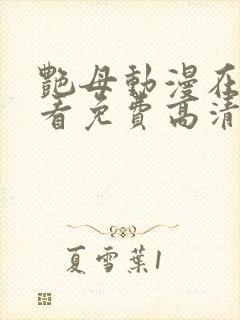 艷母動漫在
看免費高清
夏雪葉1